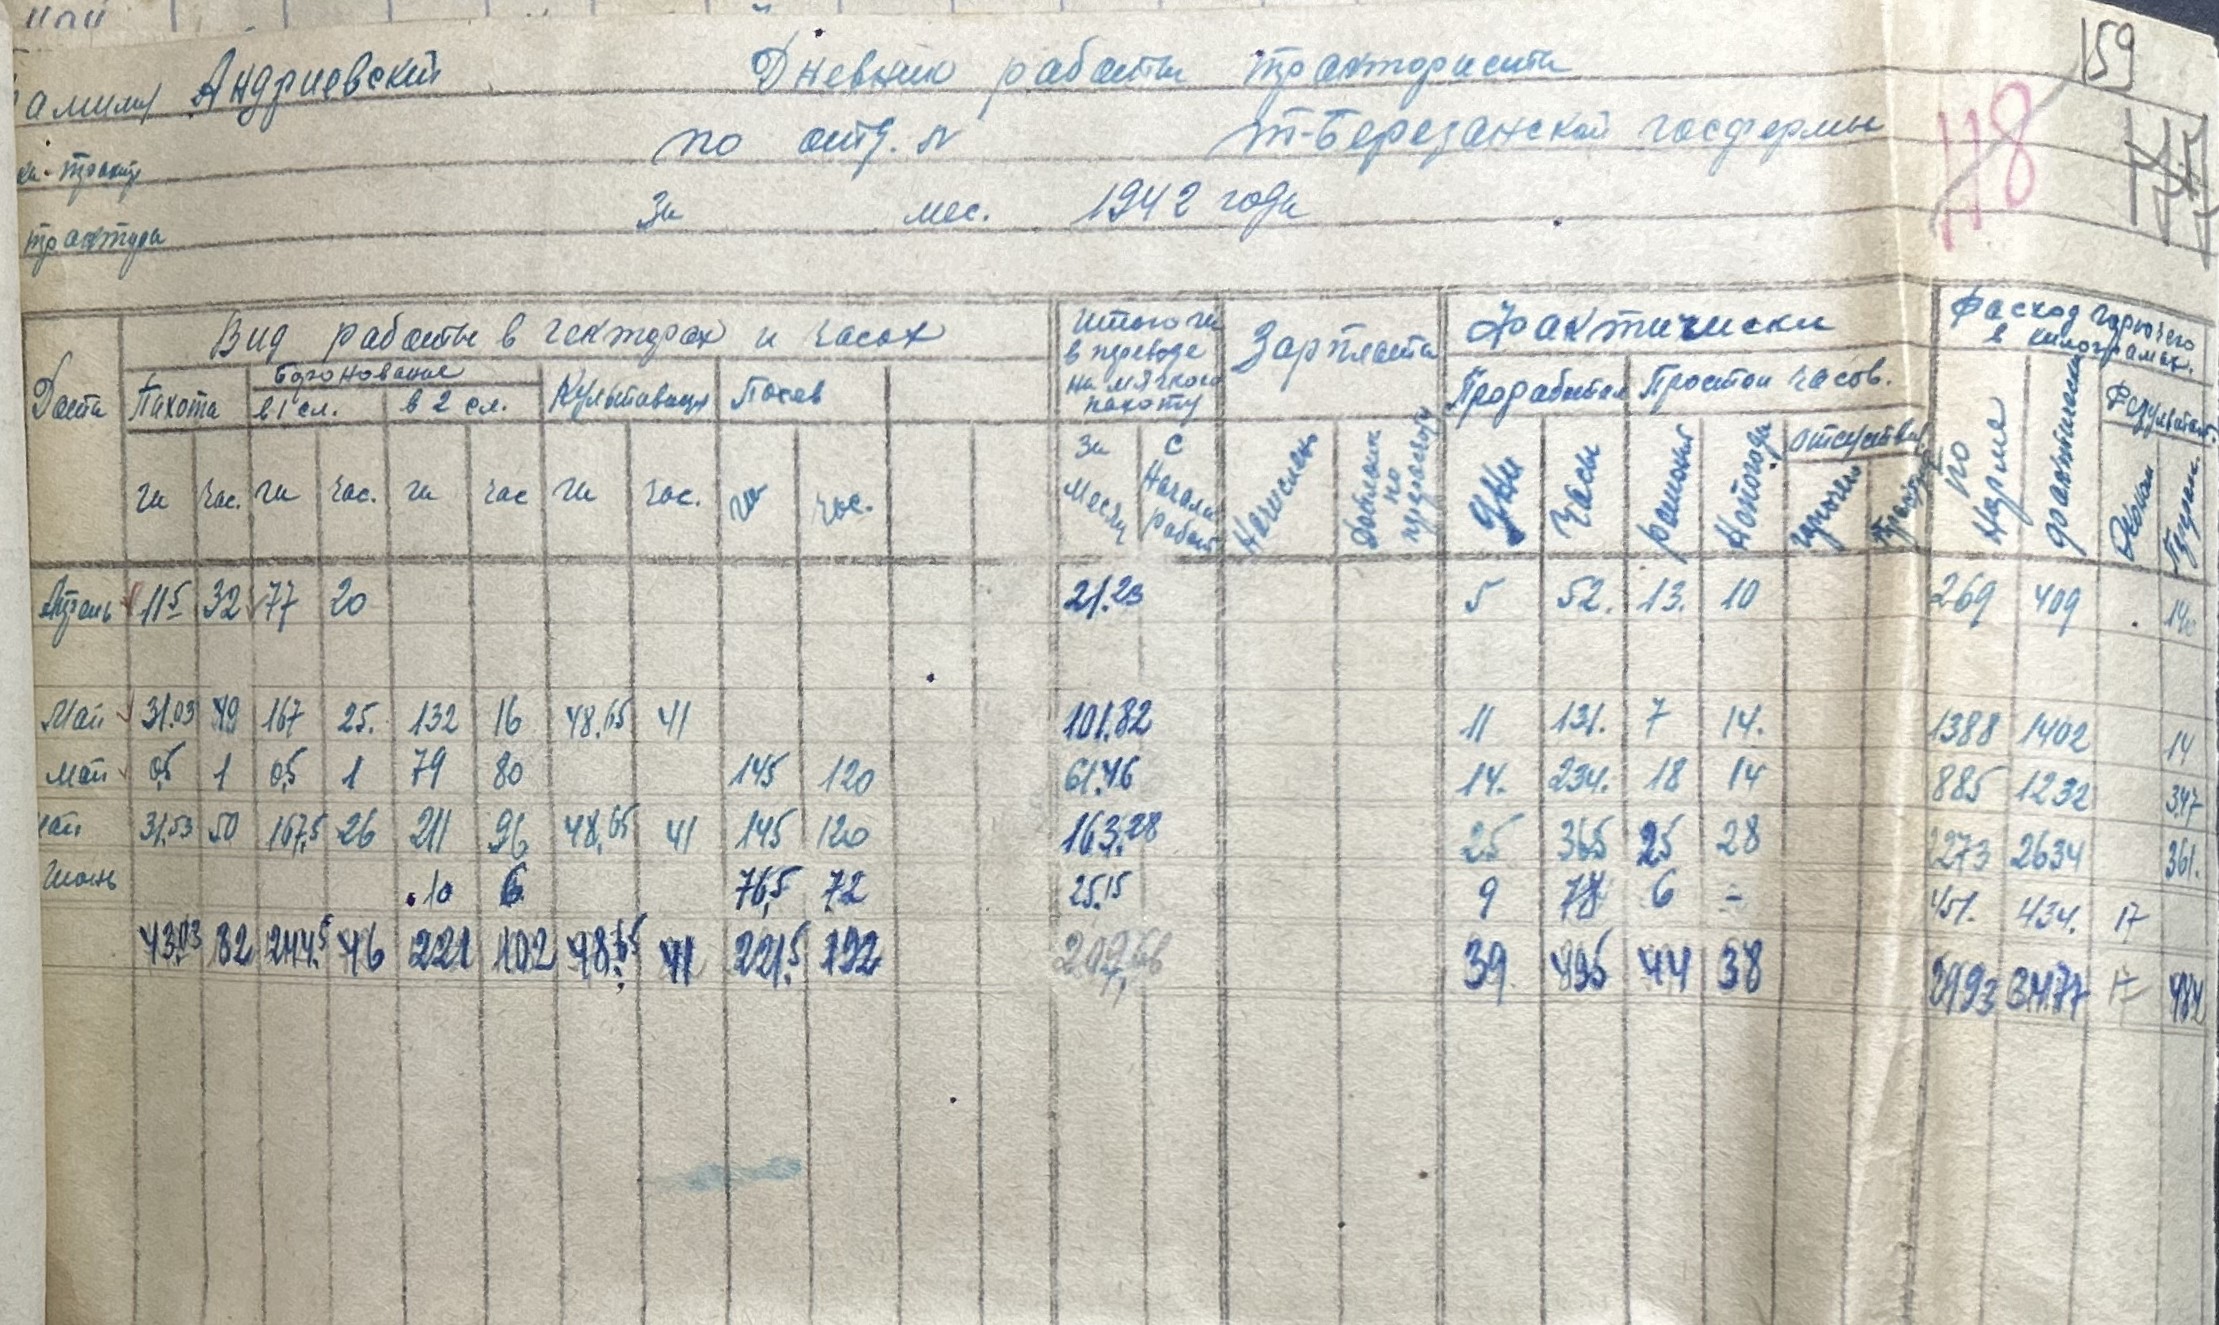 159
Фамилия Андриевский Дневник работы тракториста
118
по отд. N Т-Березанской госфермы
177
трактора За мес. 1942 года
Дата Вид работы в гектарах и часах Итого га в переводе на мягкую пахоту Зарплата Фактически Расход горючего в килограмах.
Пахота Боронование в 1 сл. в 2 сл. Культивация Посев Проработал Простои часов. Результат.
га час. га час. га час га час. га час. За месяц С начала работ Начислен дни Часы ремонт Непогода отсутствие горючего по норме фактически Эконом
Апрель 11⁵ 32 77 20 21.23 5 52. 13. 10 269 409 140
Май 31.03 49 167 25. 132 16 48,65 41 101.82 11 131. 7 14. 1388 1402 14
Май 0,5 1 0,5 1 79 80 145 120 61.46 14. 234. 18 14 885 1232 347
май 31.53 50 167,5 26 211 96 48,65 41 145 120 163.28 25 365 25 28 2273 2634 361.
Июнь 10 6 76,5 72 25.15 9 78 6 - 451. 434. 17
43.03 82 244.5 46 221 102 48.65 41 221.5 192 39 495 44 38 2993 3477 17